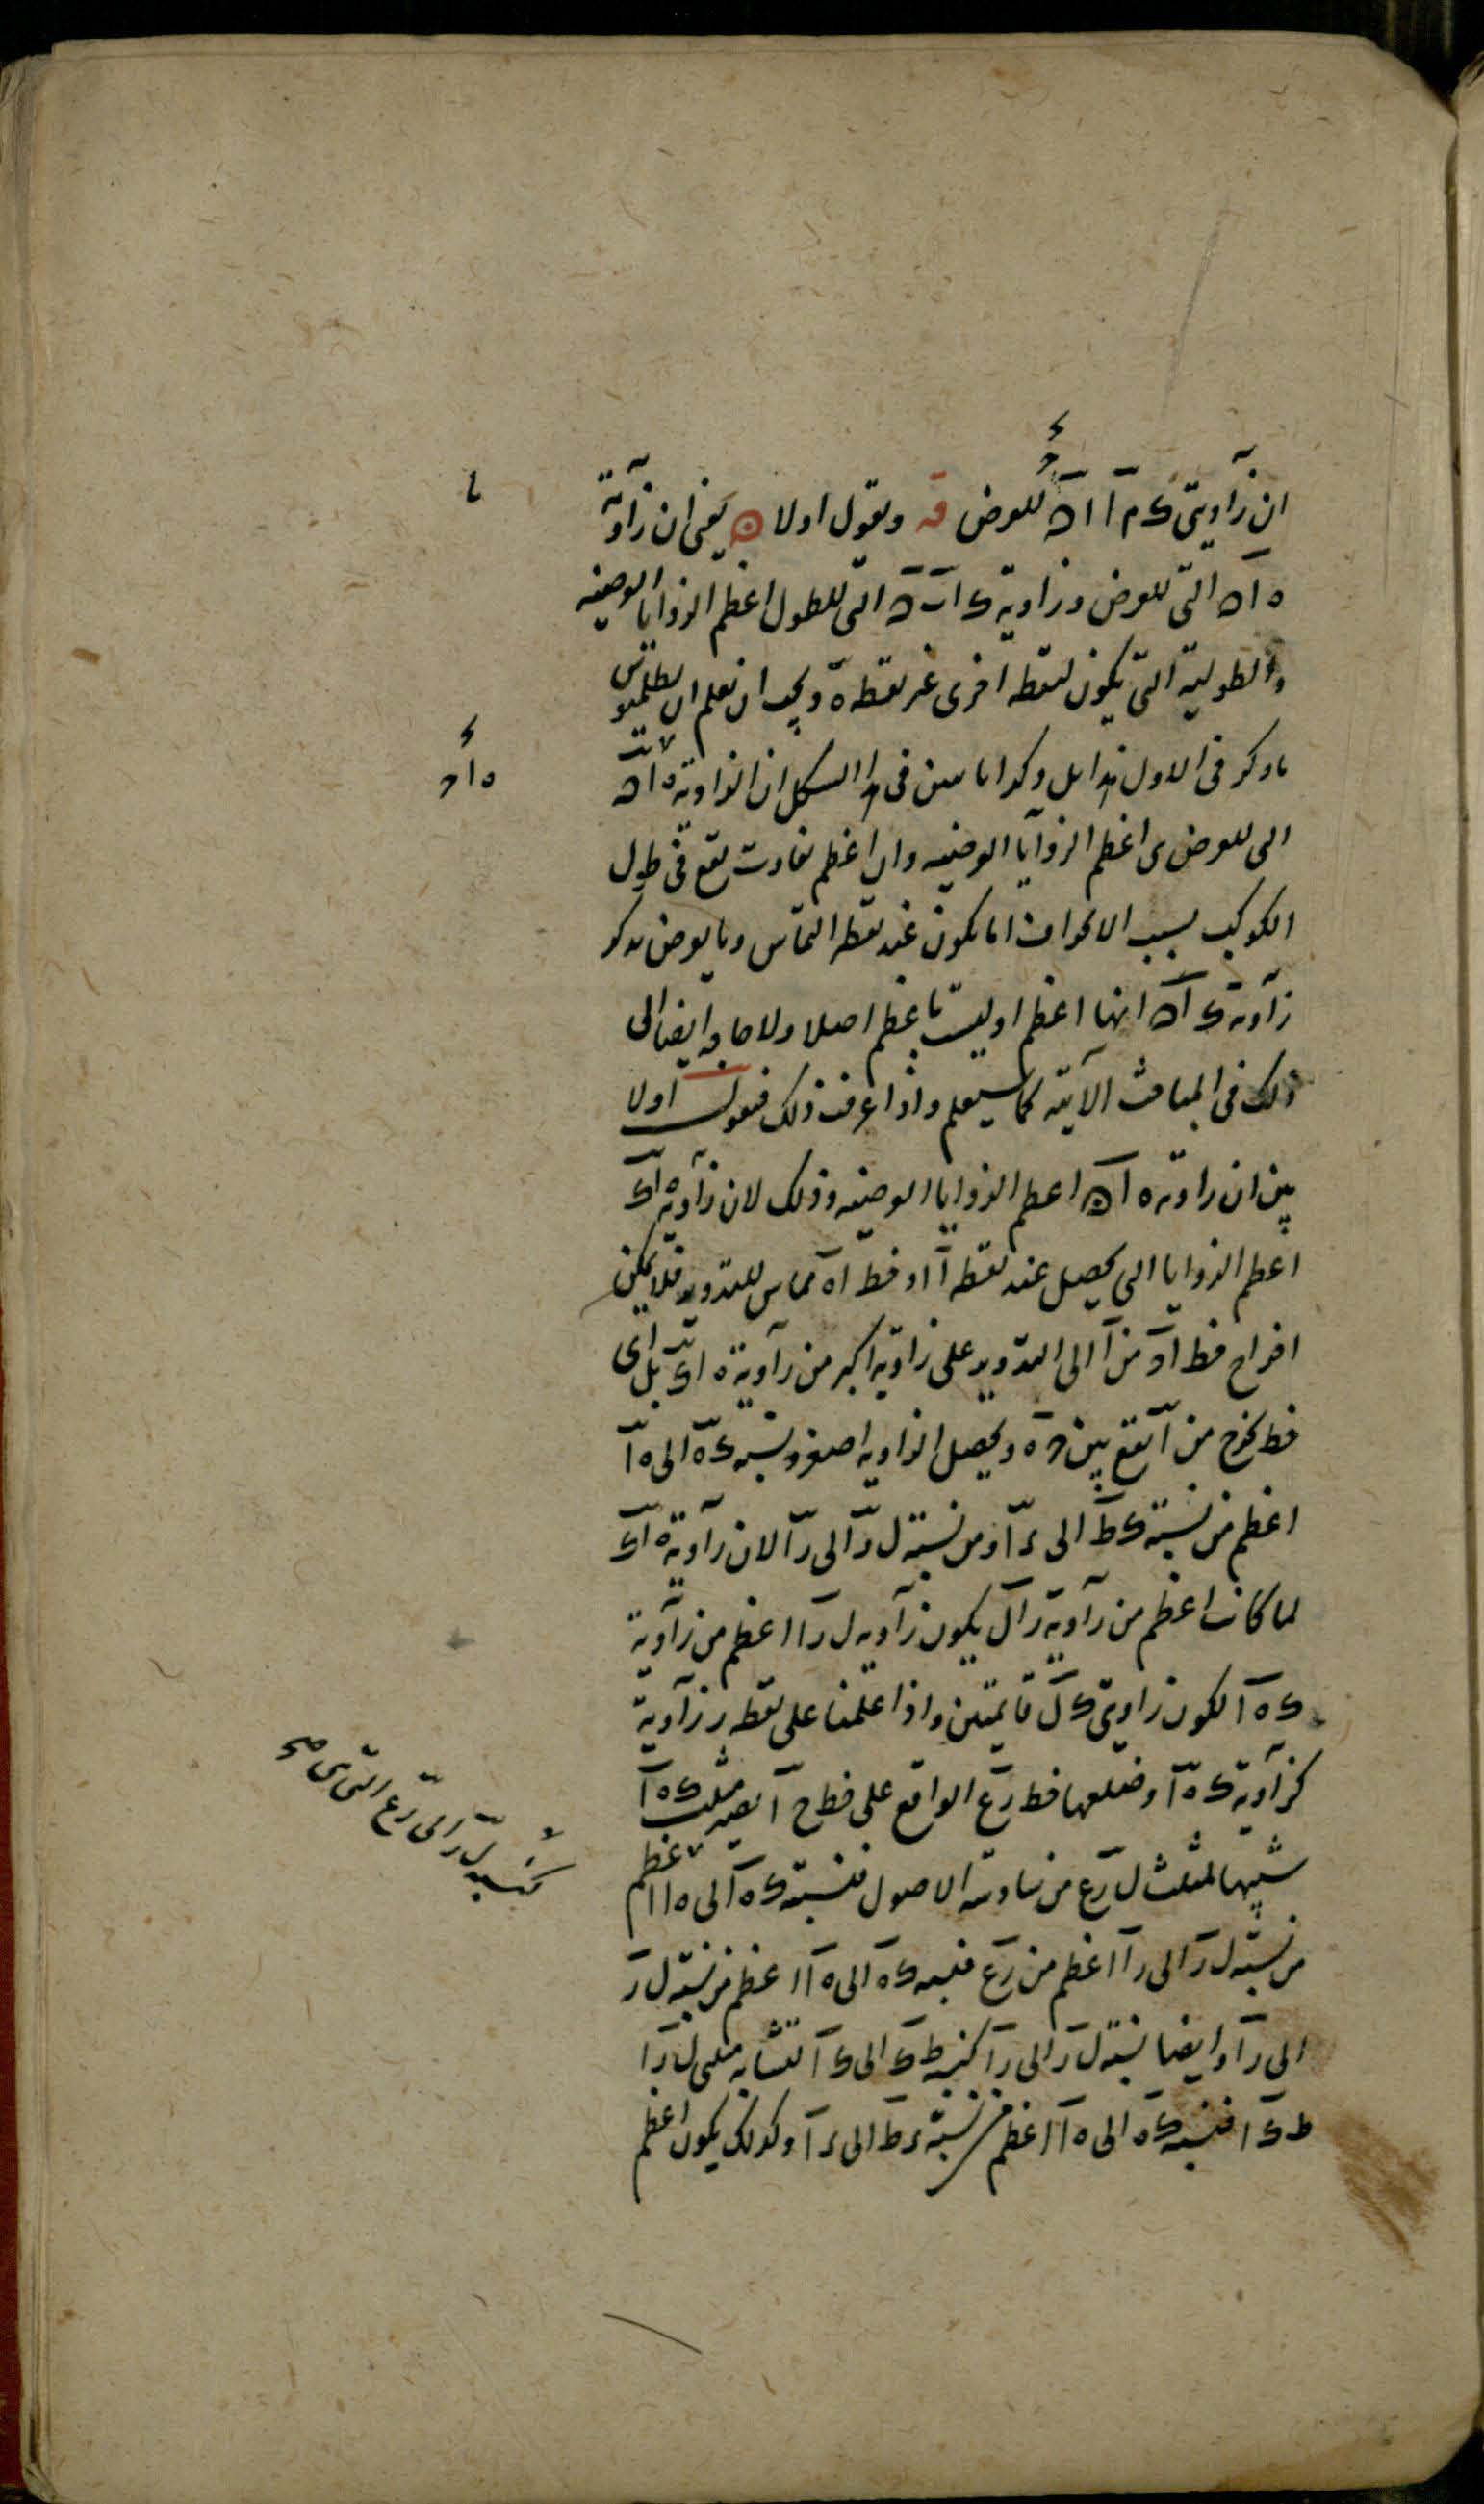 ان زاويتي ك م ا ا ه للعرض قه ونقول اولا يعنى ان زاوية
ه ا ه التي للعرض وزاوية ك ا ه التي للطول اعظم الزوايا العرضية
والطولية التي يكون لنقطة اخرى غير نقطة ه ويجب ان نعلم ان بطلميوس
ما ذكر في الاول هذا بل وكذا ما بين في هذا الشكل ان الزاوية ه ا ه
التي للعرض هي اعظم الزوايا العرضية وان اعظم تفاوت يقع في طول
الكوكب بسبب الانحراف انما يكون عند نقطة التماس وما يعرض بذكر
زاوية ك ا ه انها اعظم او ليست باعظم اصلا ولا حاجة ايضا الى
ذلك في المباحث الآتية كما سيعلم واذا عرفت ذلك فنقول اولا
بين ان زاوية ه ا ه اعظم الزوايا العرضية وذلك لان زاوية ه ا ك
اعظم الزوايا التي يحصل عند نقطة ا اذ خط ا ه مماس للتدوير فلا يمكن
اخراج خط اخر من ا الى التدوير على زاوية اكبر من زاوية ه ا ك بل اى
خط يخرج من ا يقع بين ح ه ويحصل الزاوية اصغر ونسبة ك ه الى ه ا
اعظم من نسبة ك ط الى ء ا ومن نسبة ل ر الى ر ا لان زاوية ه ا ك
لما كانت اعظم من زاوية ر ا ل يكون زاوية ل ر ا اعظم من زاوية
ك ه ا لكون زاويتي ك ل قايمتين واذا علمنا على نقطة ر زاوية
كزاوية ك ه ا وضلعها خط ر ع الواقع على خط ح ا يصير مثلث ك ه ا
شبيها لمثلث ل ر ع من سادسة الاصول فنسبة ك ه الى ه ا اعظم
من نسبة ل ر الى ر ا اعظم من ر ع فنسبة ك ه الى ه ا اعظم من نسبة ل ر
الى ر ا وايضا نسبة ل ر الى ر ا كنسبة ط ك الى ك ا لتشابه مثلثي ل ر ا
ط ك ا فنسبة ك ه الى ه ا اعظم من نسبة ء ط الى ء ا وكذلك يكون اعظم
ه ا ح
كنسبة ل ر الى ر ع التي هي صح